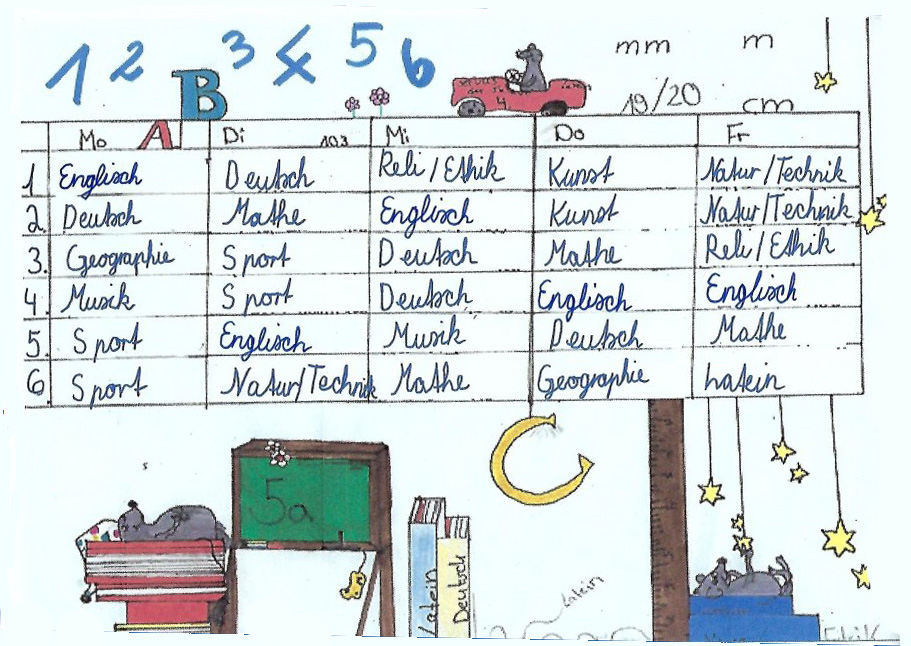 1 2 3 4 5 6 mm m
B 19/20 cm
Mo A Di 103 Mi Do Fr
1 Englisch Deutsch Reli/Ethik Kunst Natur/Technik
2. Deutsch Mathe Englisch Kunst Natur/Technik
3. Geographie Sport Deutsch Mathe Reli/Ethik
4. Musik Sport Deutsch Englisch Englisch
5. Sport Englisch Musik Deutsch Mathe
6. Sport Natur/Technik Mathe Geographie Latein
C
5a
Latein
Deutsch
Latein